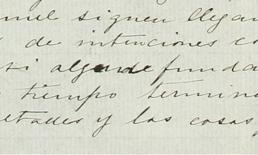 mil siguen llegan
de intenciones co
si algunde funda
tiempo termina
ltades y las cosas,